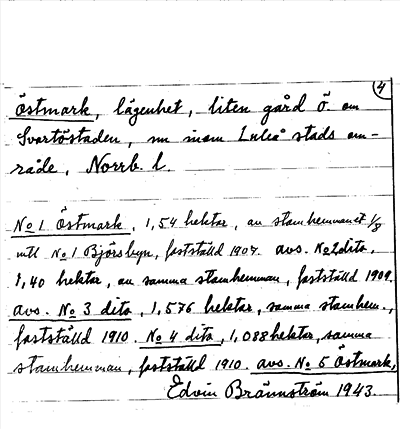 4
Östmark, lägenhet, liten gård Ö. om
Svartöstaden, nu inom Luleå stads om-
råde, Norrb. l.
No 1 Östmark, 1,54 hektar, av stamhemmanet 1/8
mtl No 1 Björsbyn, fastställd 1907. avs. No 2 dito,
1,40 hektar, av samma stamhemman, fastställd 1909.
avs. No 3 dito, 1,576 hektar, samma stamhem.,
fastställd 1910. No 4 dito, 1,088 hektar, samma
stamhemman, fastställd 1910. avs. No 5 Östmark,
Edvin Brännström 1943.